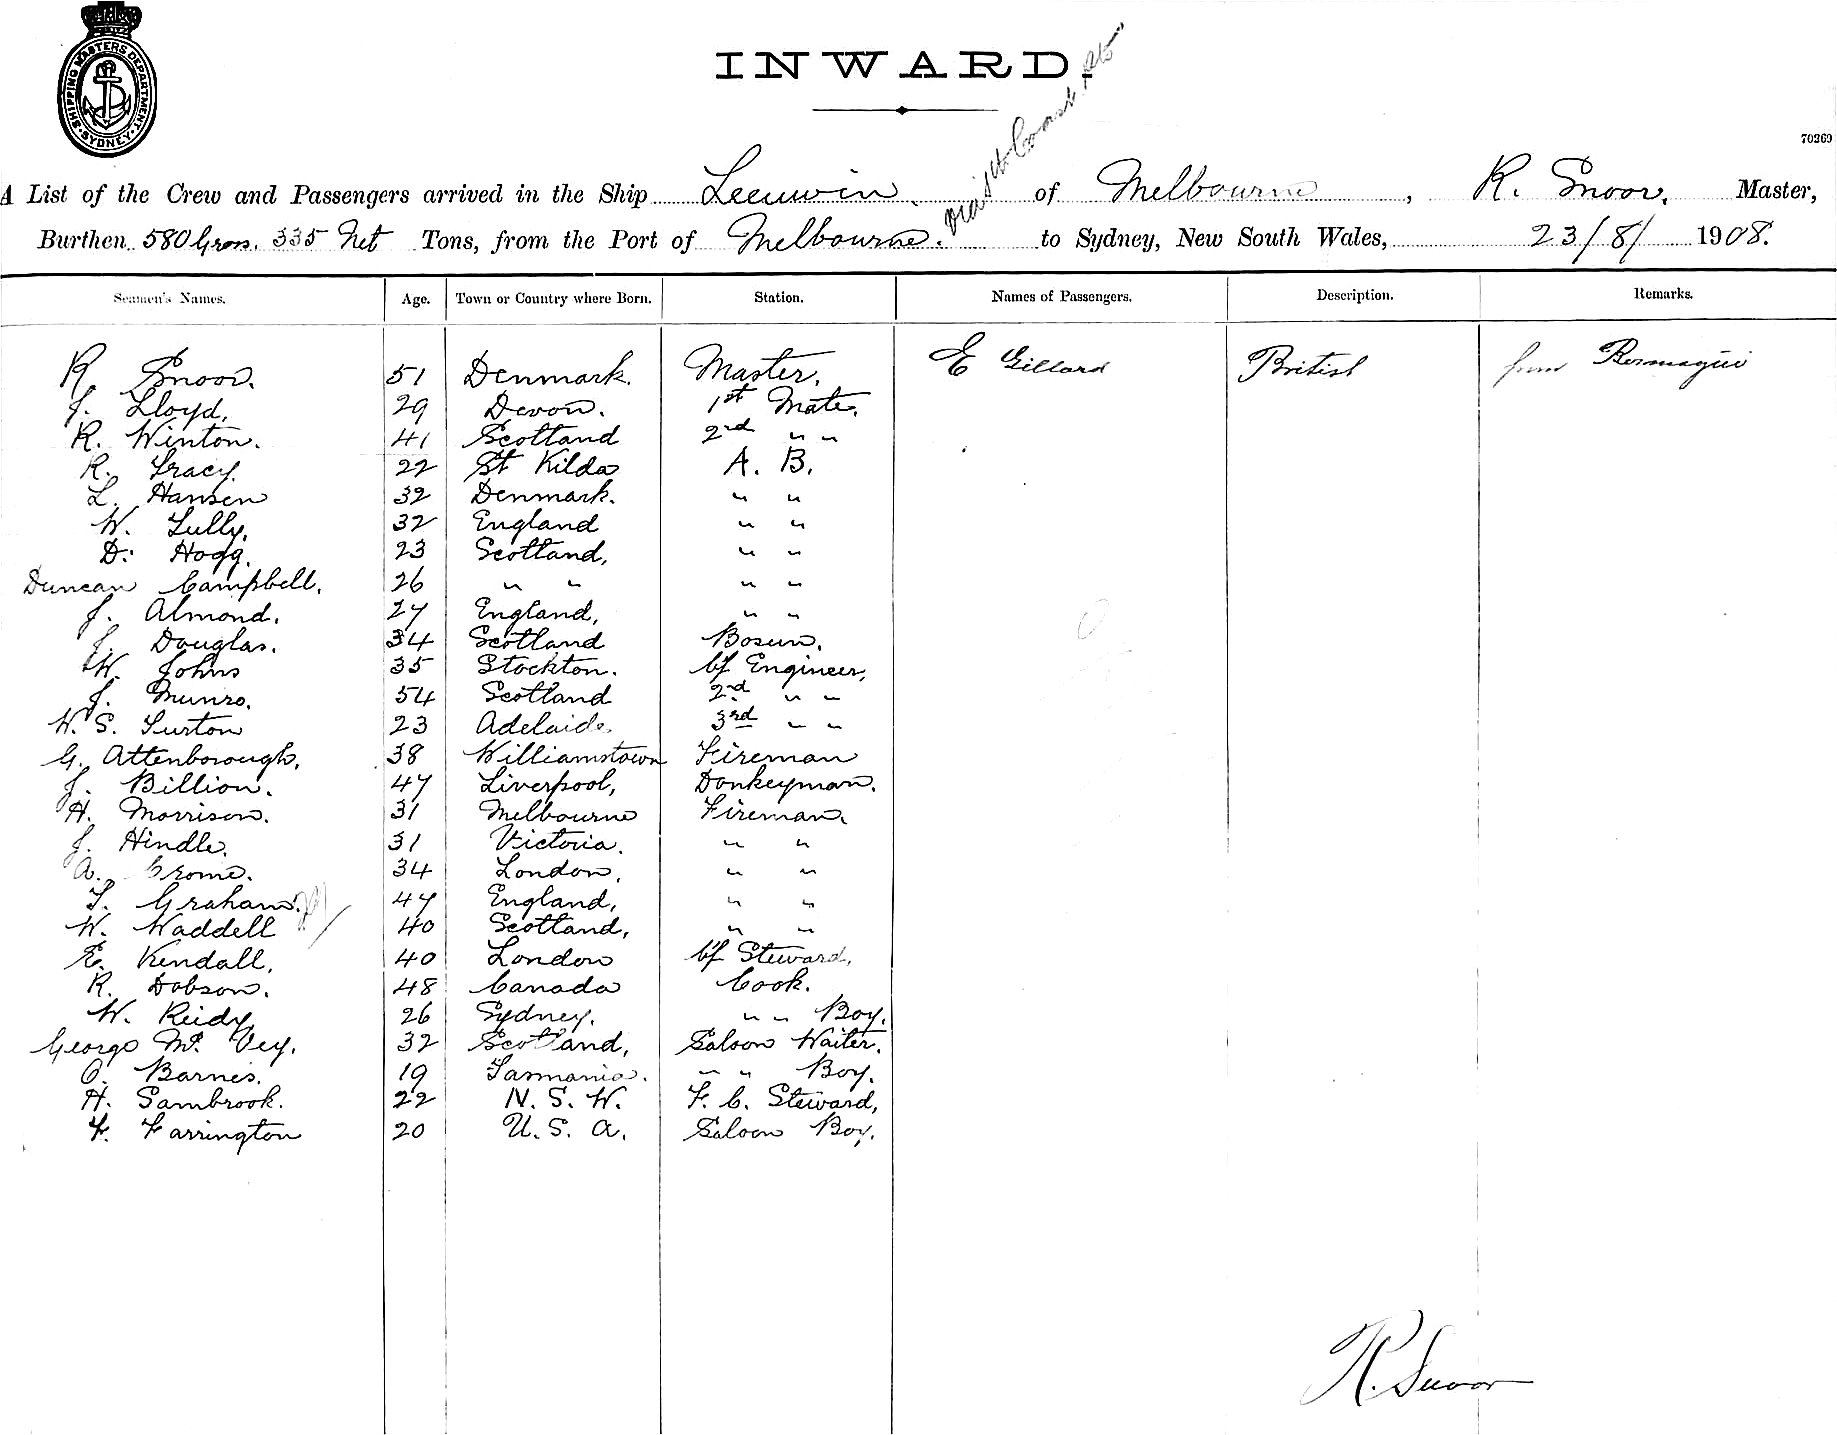 SHIPPING MASTERS DEPARTMENT · SYDNEY ·
INWARD.
70269
A List of the Crew and Passengers arrived in the Ship Leeuwin. of Melbourne, R. Snoor. Master,
Burthen 580 Gross. 335 Net Tons, from the Port of Melbourne. to Sydney, New South Wales, 23/8/ 1908.
Seamen's Names. Age. Town or Country where Born. Station. Names of Passengers. Description. Remarks.
R. Snoor. 51 Denmark. Master. E Gillard British from Bermagui
J. Lloyd. 29 Devon. 1st Mate.
R. Winton. 41 Scotland 2nd " "
R. Tracy. 22 St Kilda A. B.
L. Hansen 32 Denmark. " "
W. Tully. 32 England " "
D. Hogg. 23 Scotland, " "
Duncan Campbell. 26 " " " "
J. Almond. 27 England, " "
J. Douglas. 34 Scotland Bosun.
W. Johns 35 Stockton. Cf Engineer,
J. Munro. 54 Scotland 2nd " "
W. S. Turton 23 Adelaide. 3rd " "
G. Attenborough, 38 Williamstown Fireman
J. Billion. 47 Liverpool, Donkeyman.
H. Morrison. 31 Melbourne Fireman.
J. Hindle. 31 Victoria. " "
A. Crome. 34 London. " "
T. Graham. 47 England, " "
W. Waddell 40 Scotland, " "
E. Kendall, 40 London Cf Steward,
R. Dobson. 48 Canada Cook.
W. Reidy 26 Sydney. " " Boy.
George Mc Vey. 32 Scotland, Saloon Waiter.
O. Barnes. 19 Tasmania. " " Boy.
H. Sambrook. 22 N. S. W. F. C. Steward,
F. Farrington 20 U. S. A. Saloon Boy.
R. Snoor